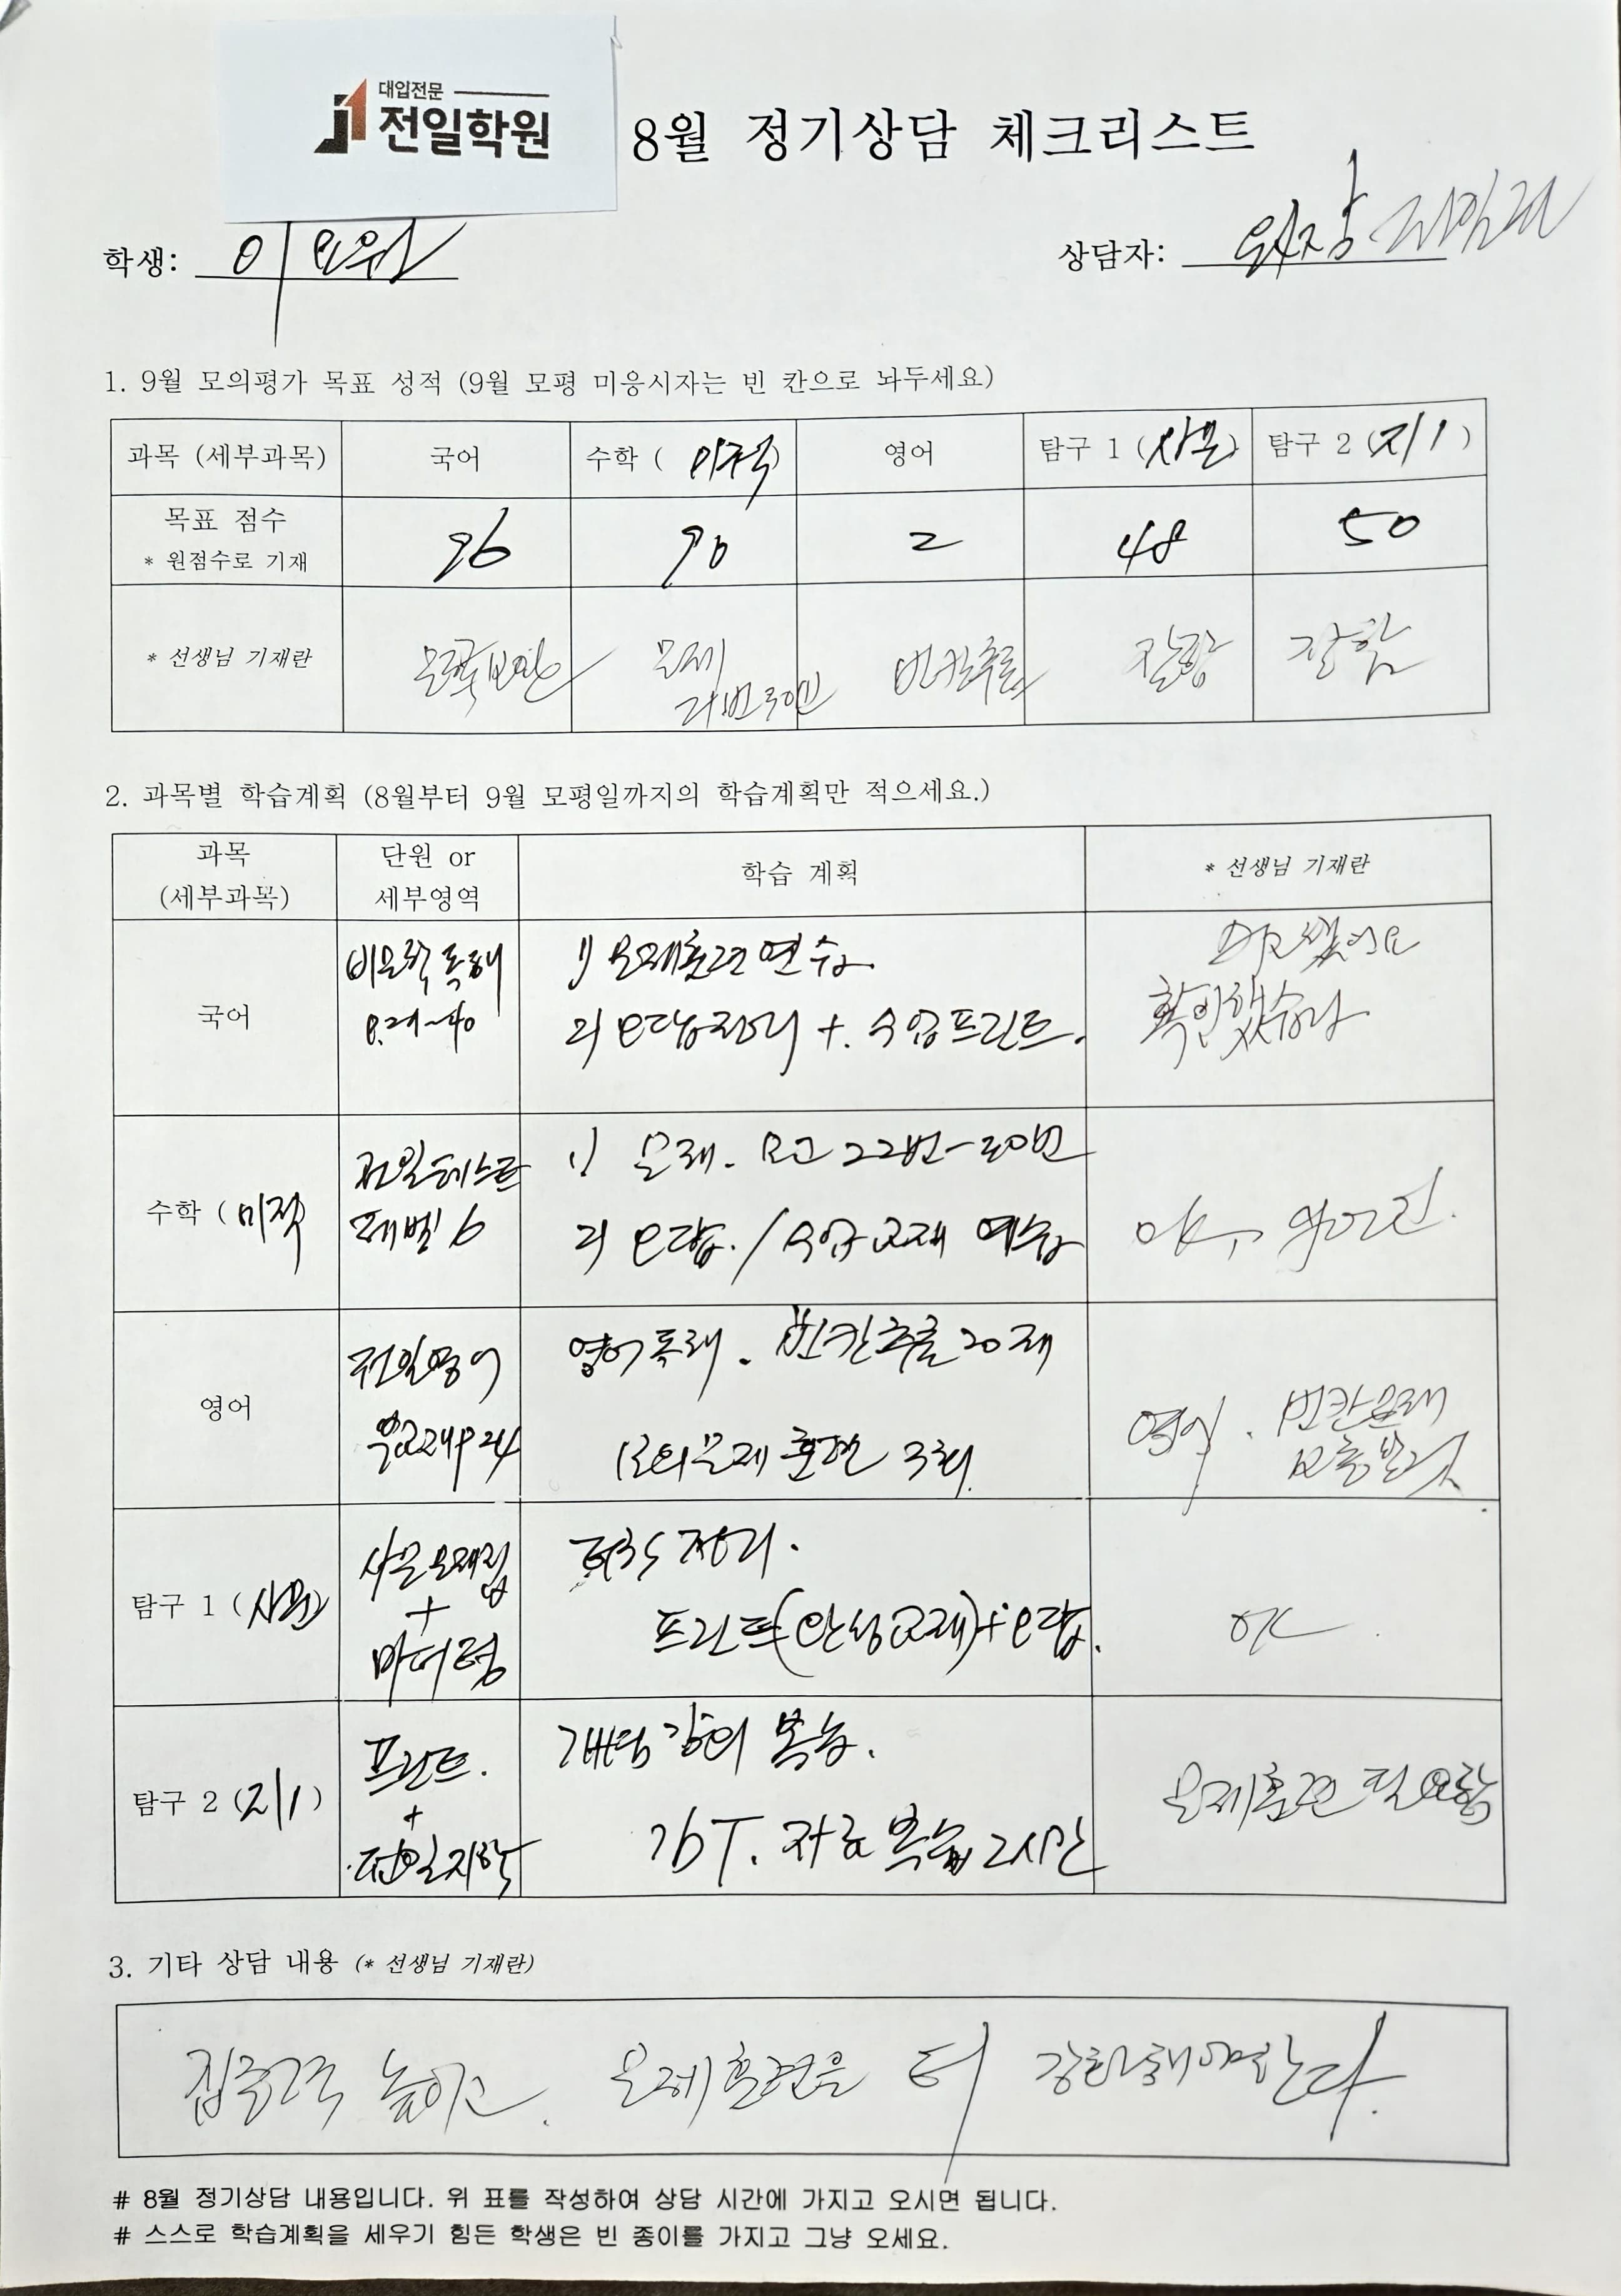 대입전문
전일학원
8월 정기상담 체크리스트
학생: 이요원
상담자: 원장
1. 9월 모의평가 목표 성적 (9월 모평 미응시자는 빈 칸으로 놔두세요)
과목 (세부과목) 국어 수학 ( 미적 ) 영어 탐구 1 (사문) 탐구 2 (지1)
목표 점수
* 원점수로 기재
96 90 2 48 50
* 선생님 기재란
문제 빈칸추론 잘함 잘함
2. 과목별 학습계획 (8월부터 9월 모평일까지의 학습계획만 적으세요.)
과목
(세부과목)
단원 or
세부영역
학습 계획
* 선생님 기재란
국어
비문학 독해
1) 문제훈련 연습
2) 오답정리 + 수업프린트.
확인했습니다
수학 ( 미적
전일테스트
레벨 6
1) 문제. 모고 22번~30번
2) 오답. / 수업교재 예습
영어
전일영어
영어독해. 빈칸추론 20제
모의문제 훈련 3회.
영어. 빈칸문제
탐구 1 (사문)
사문문제집
+
마더텅
정리.
프린트(완성교재)+오답.
OK
탐구 2 (지1)
프린트.
+
전일지학
개념강의 복습.
T. 자료 복습 2시간
문제훈련 필요함
3. 기타 상담 내용 (* 선생님 기재란)
집중력 높이고. 문제훈련을 더 강화해야한다.
# 8월 정기상담 내용입니다. 위 표를 작성하여 상담 시간에 가지고 오시면 됩니다.
# 스스로 학습계획을 세우기 힘든 학생은 빈 종이를 가지고 그냥 오세요.